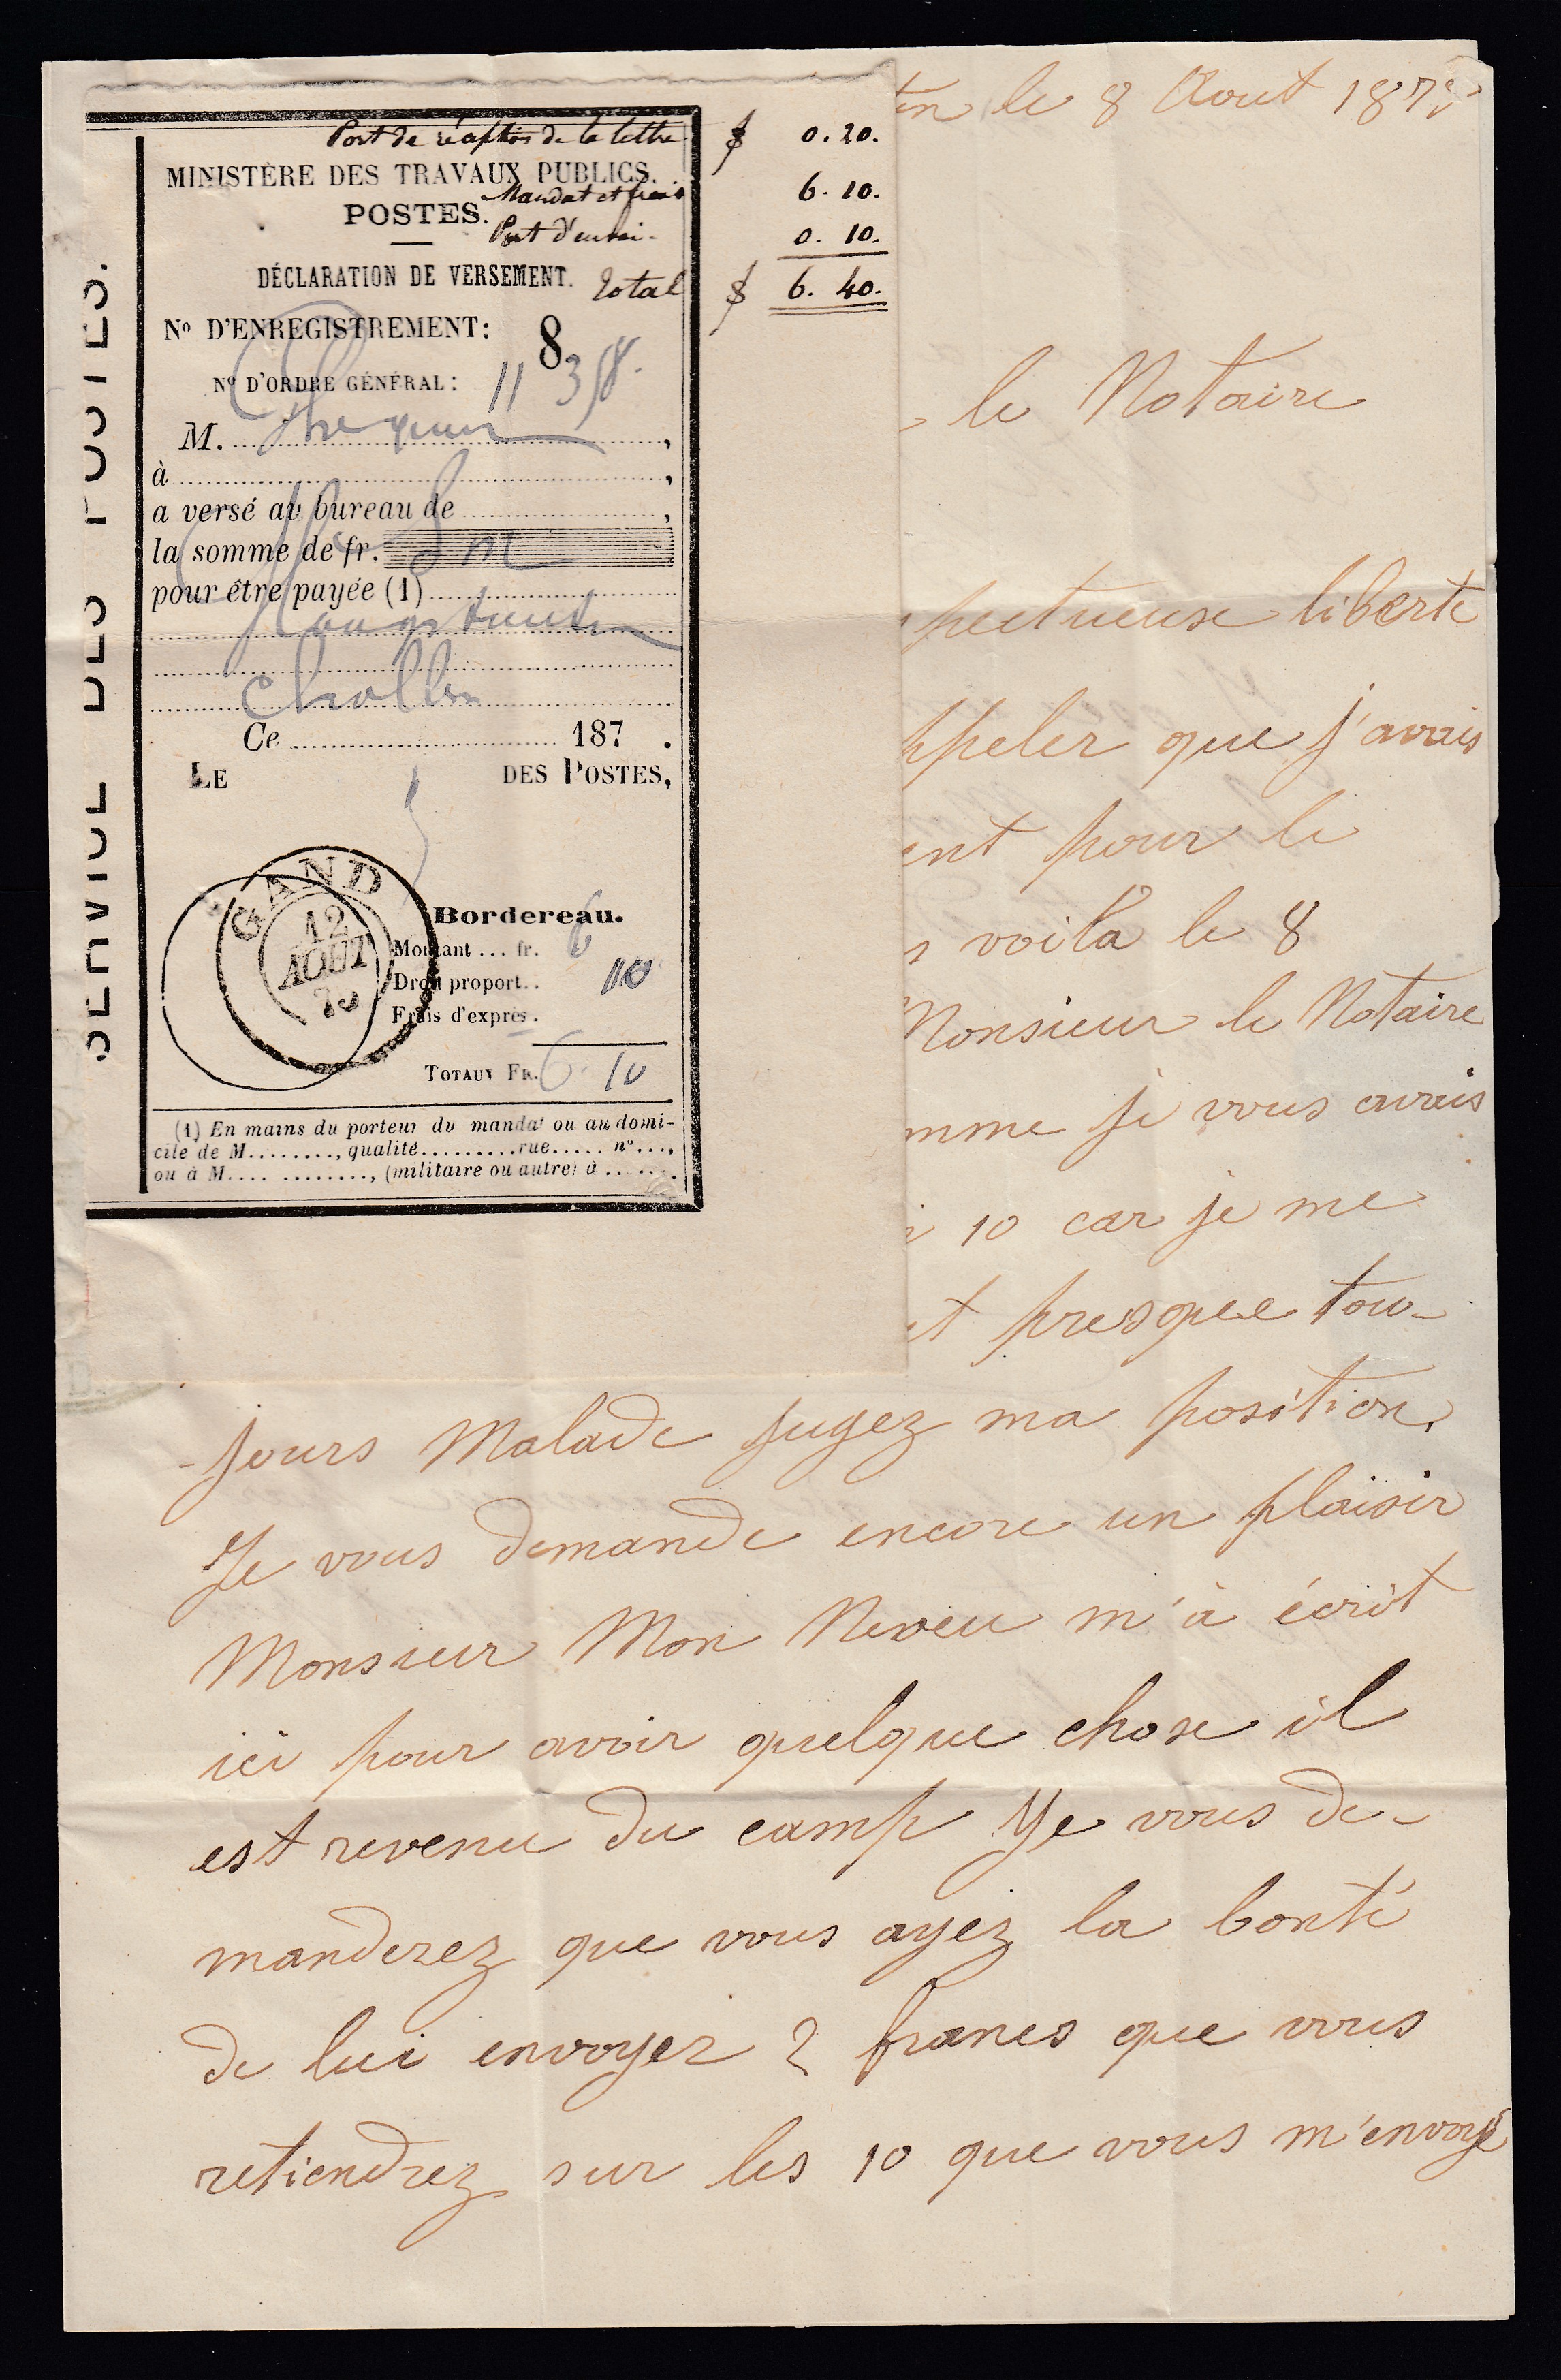 SERVICE DES POSTES.
Port de réception de la lettre $ 0.20.
MINISTÈRE DES TRAVAUX PUBLICS.
Mandat et frais 6.10.
POSTES.
Port d'envoi. 0.10.
DÉCLARATION DE VERSEMENT.
Total $ 6.40.
No D'ENREGISTREMENT: 8
No D'ORDRE GÉNÉRAL: 11
M. ,
à ,
a versé au bureau de ,
la somme de fr.
pour être payée (1)
Ce 187 .
LE DES POSTES,
GAND
12
AOUT
75
Bordereau.
Montant ... fr. 6
Droit proport. . 10
Frais d'exprès .
TOTAUX FR. 6. 10
(1) En mains du porteur du mandat ou au domi-
cile de M........, qualité.........rue..... no...,
ou à M............, (militaire ou autre) à .......
le 8 Aout 187
le Notaire
pectueuse liberte
ppeler que j'avais
ent pour le
voila le 8
Monsieur le Notaire
mme je vous avais
10 car je me
presque tou-
-jours Malade jugez ma position.
Je vous demande encore un plaisir
Monsieur Mon Neveu m'à écrit
ici pour avoir quelque chose il
est revenu du camp Je vous de-
manderez que vous ayez la bonté
de lui envoyer 2 francs que vous
retiendrez sur les 10 que vous m'envoyé